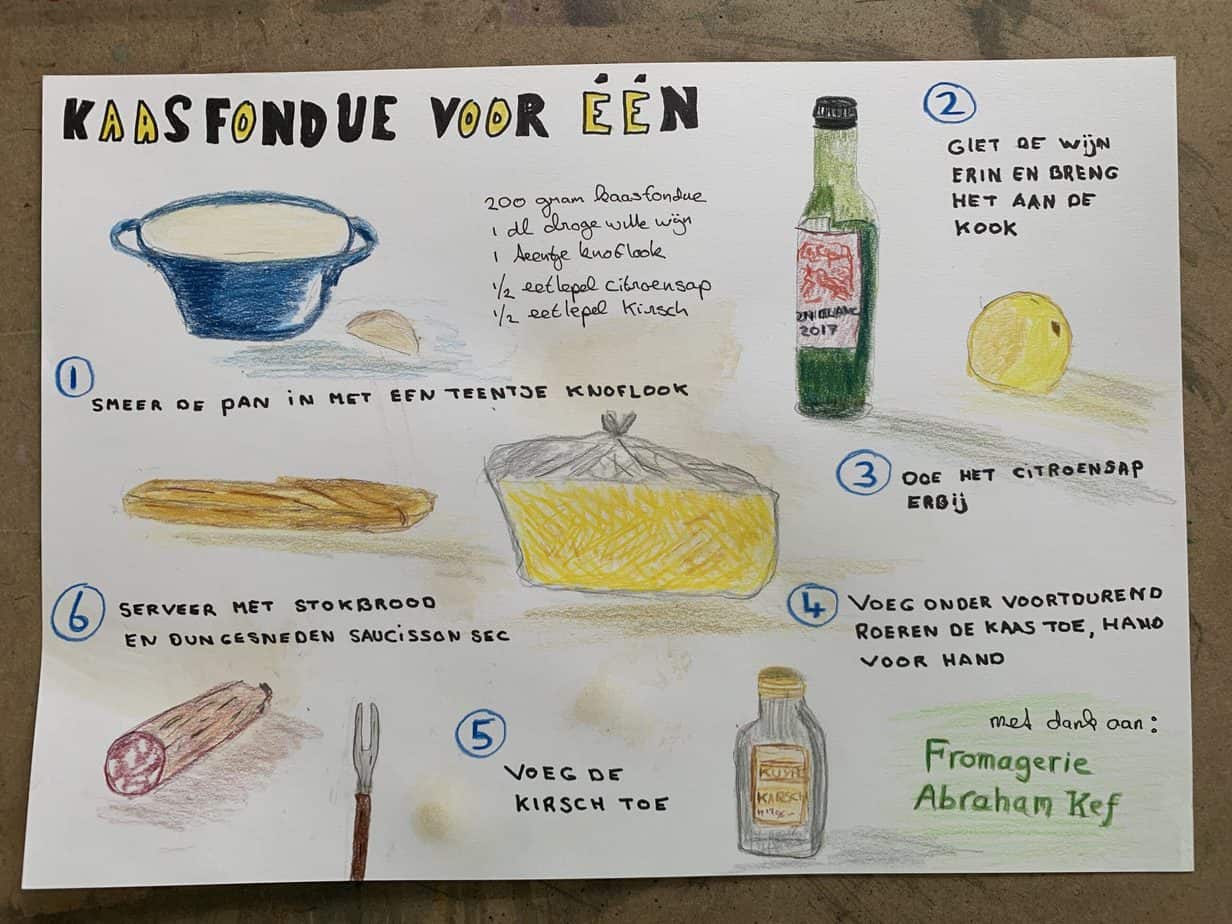 KAASFONDUE VOOR ÉÉN
200 gram kaasfondue
1 dl droge witte wijn
1 teentje knoflook
1/2 eetlepel citroensap
1/2 eetlepel Kirsch
1
SMEER DE PAN IN MET EEN TEENTJE KNOFLOOK
2
GIET DE WIJN
ERIN EN BRENG
HET AAN DE
KOOK
2017
3
DOE HET CITROENSAP
ERBIJ
4
VOEG ONDER VOORTDUREND
ROEREN DE KAAS TOE, HAND
VOOR HAND
5
VOEG DE
KIRSCH TOE
6
SERVEER MET STOKBROOD
EN DUNGESNEDEN SAUCISSON SEC
met dank aan:
Fromagerie
Abraham Kef